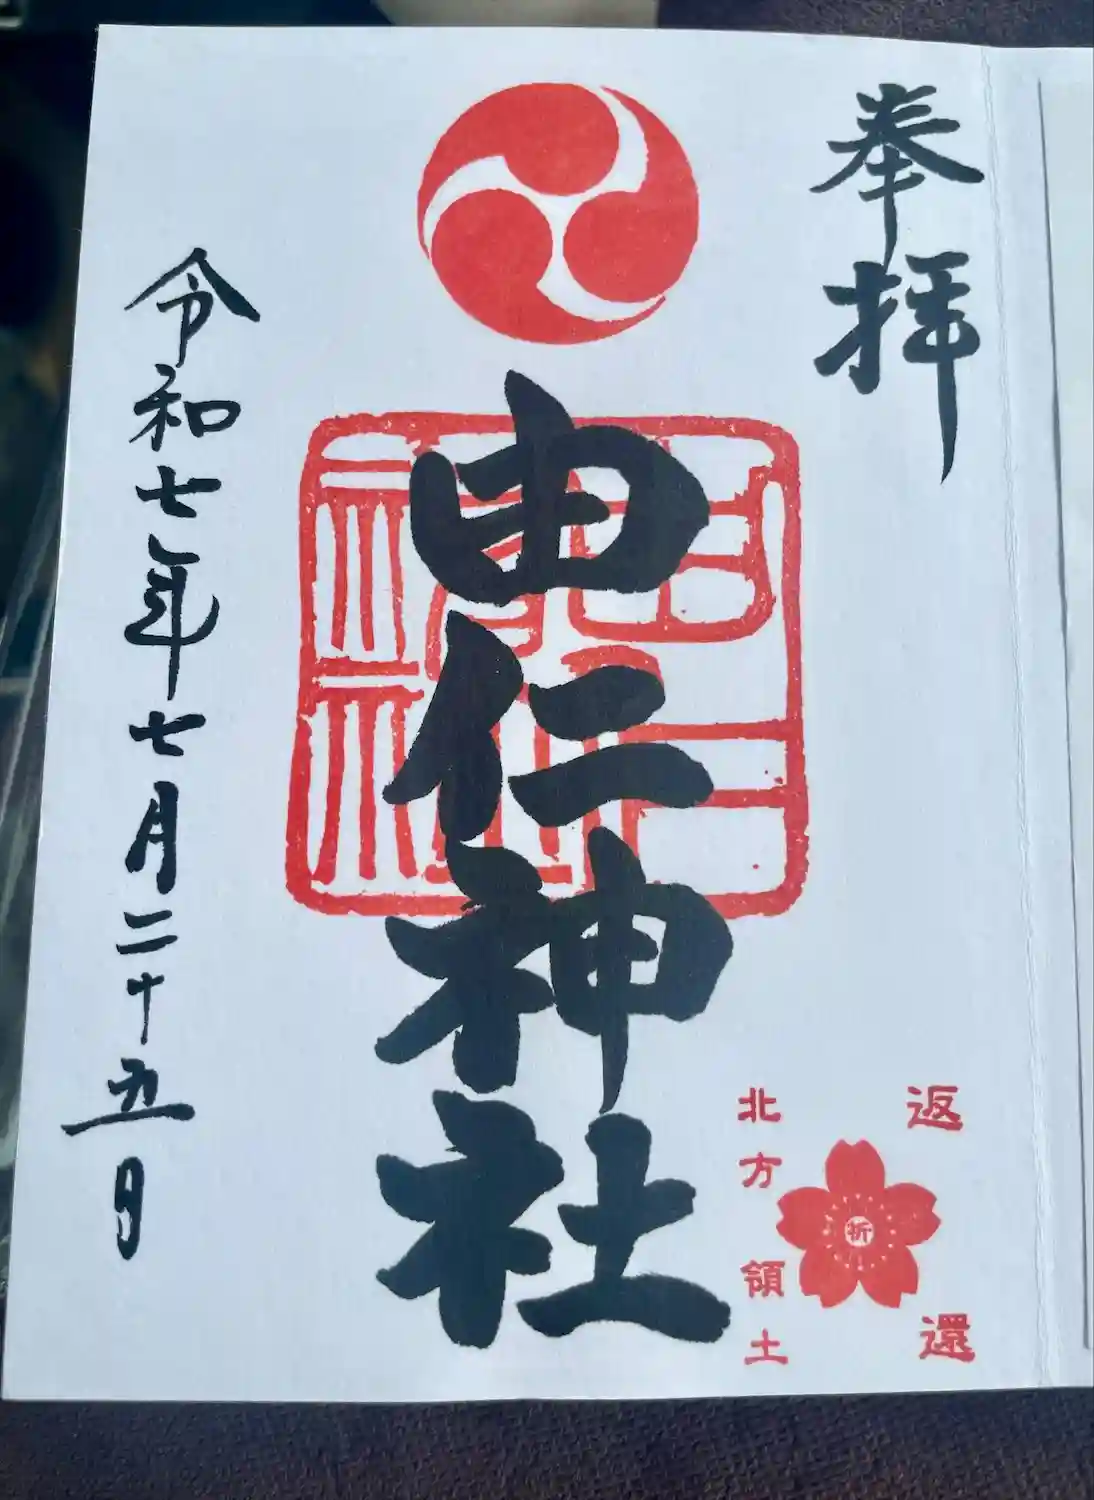 奉拝
由仁神社
由仁神社
令和七年七月二十五日
北方領土
返還
祈